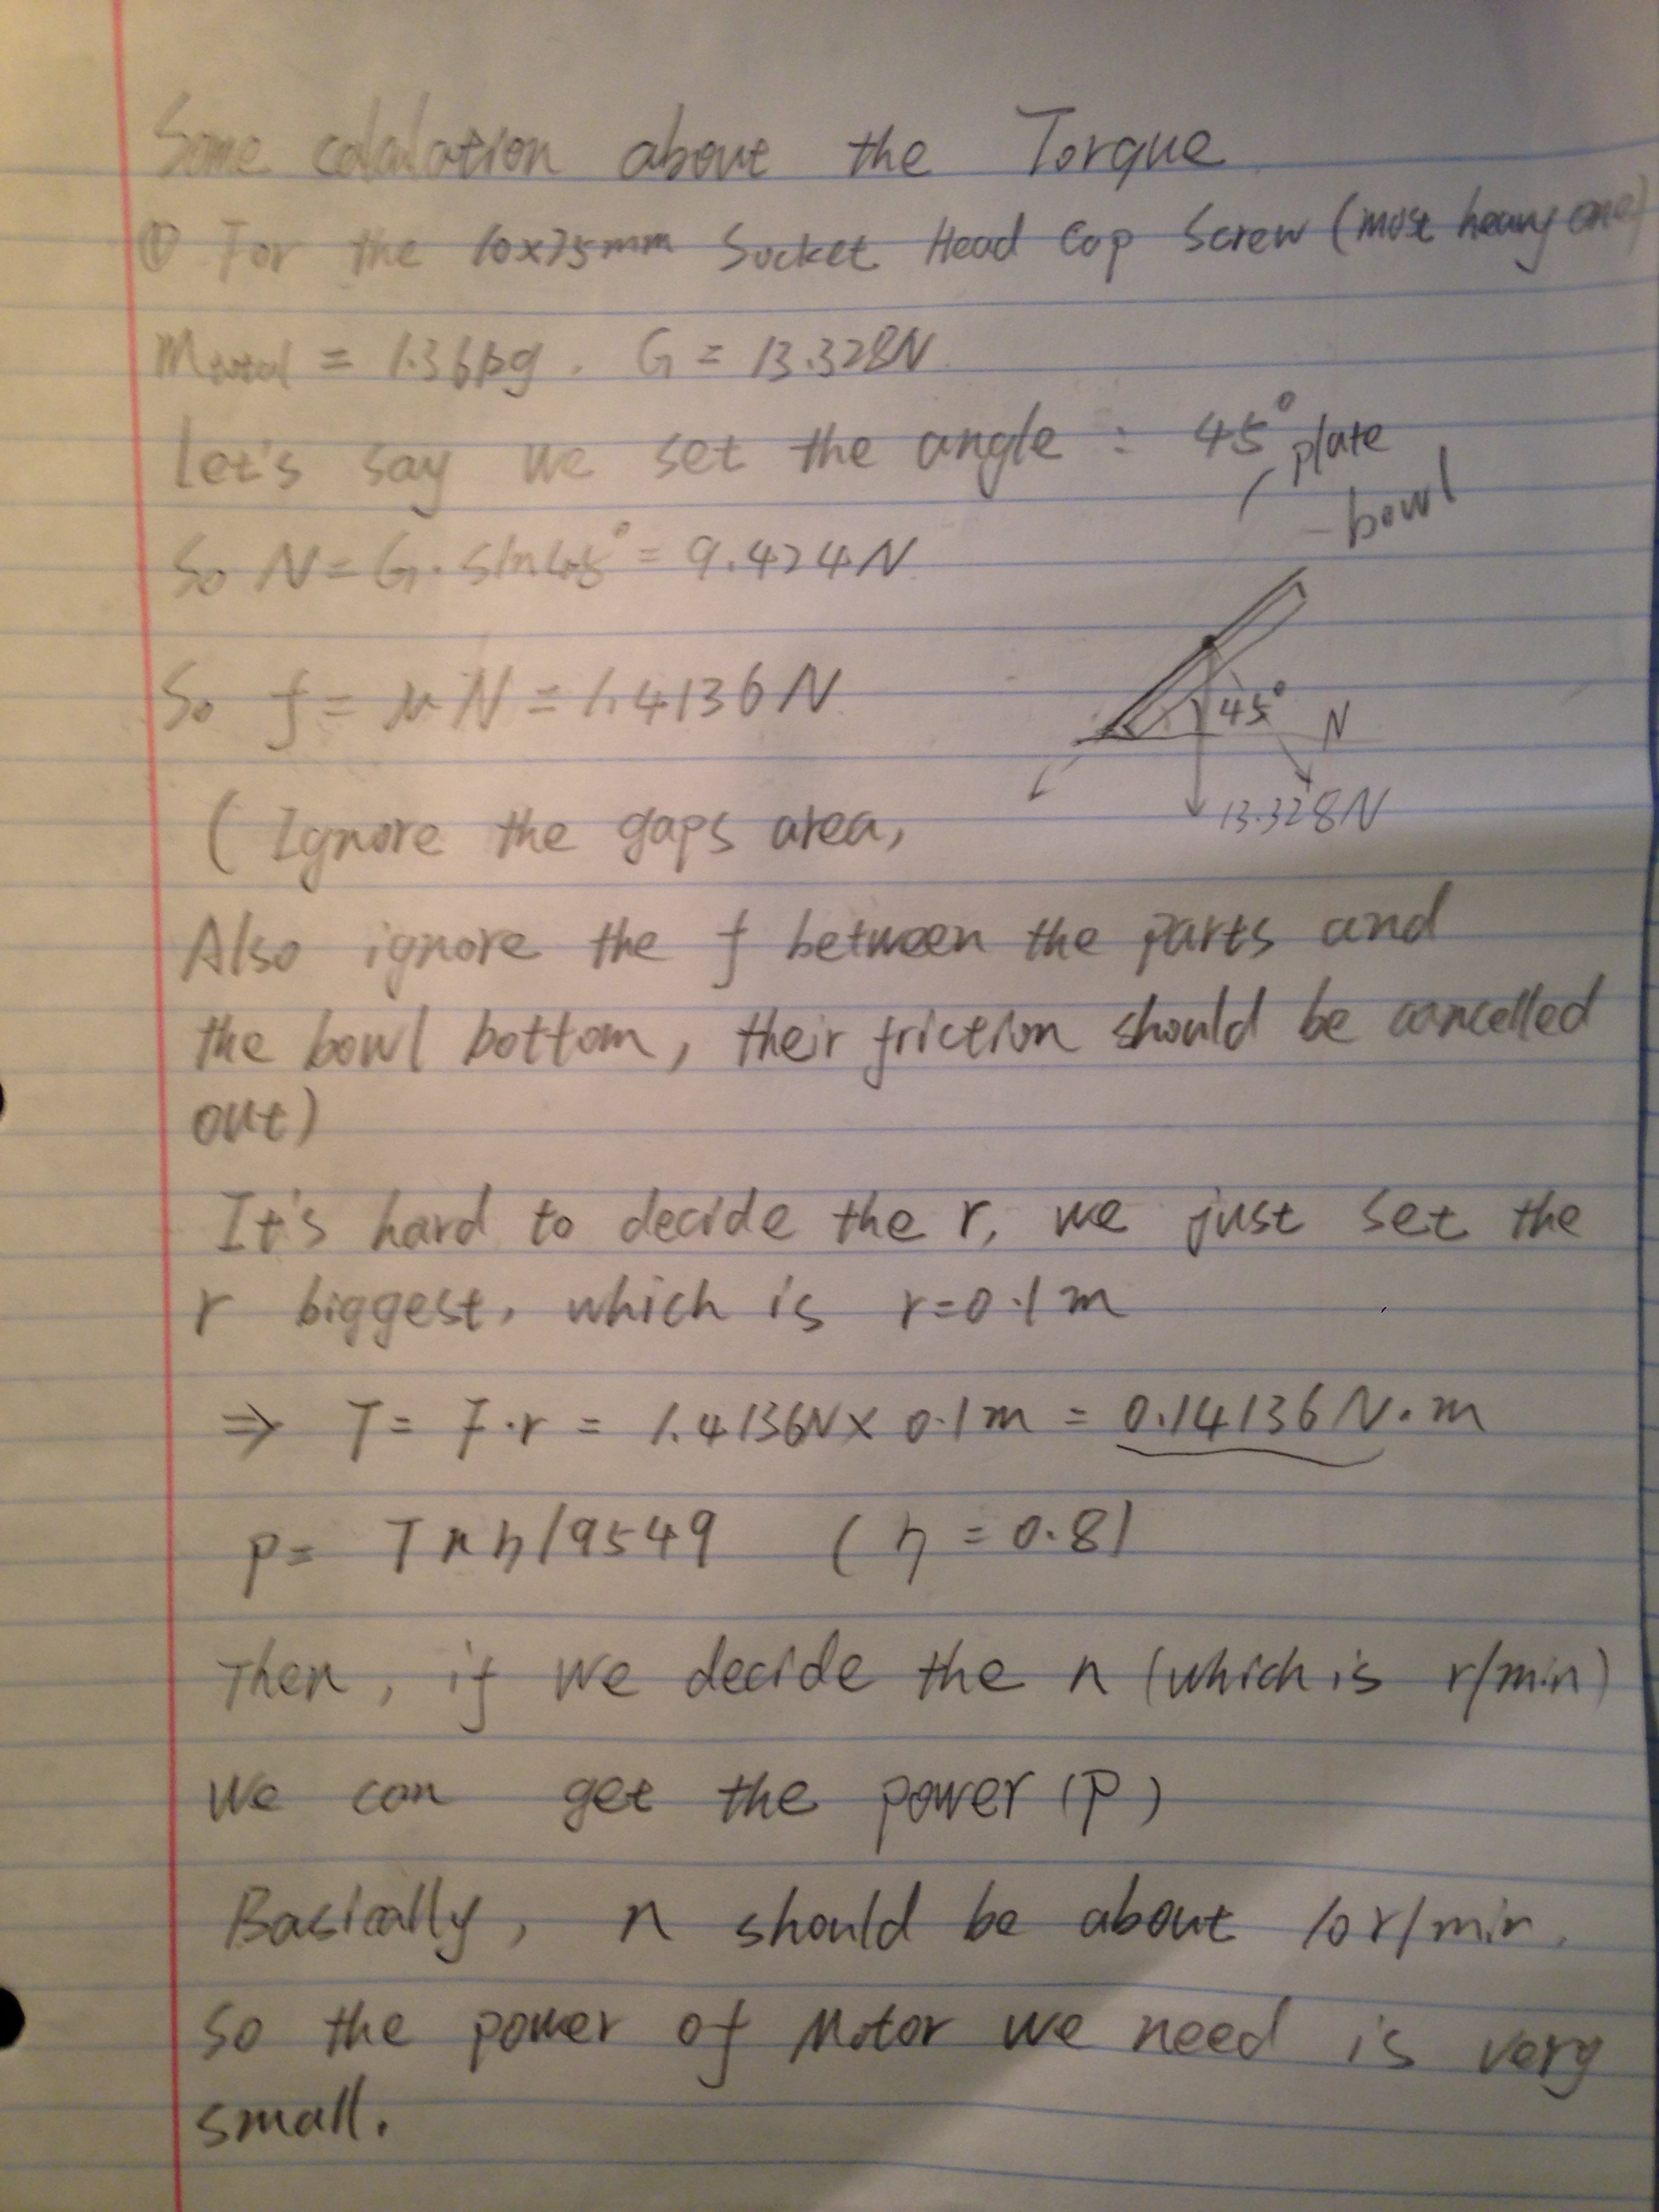 Some calalation about the Torque
① For the 10x25mm Socket Head Cap Screw (most heavy one)
Mtotal = 1.36kg. G = 13.328N
Let's say we set the angle : 45°
plate
bowl
So N = G · sin45° = 9.424N
So f = μN = 1.4136N
45° N
13.328N
( Ignore the gaps area,
Also ignore the f between the parts and
the bowl bottom, their friction should be cancelled
out)
It's hard to decide the r, we just set the
r biggest, which is r=0.1m
⇒ T = F·r = 1.4136N× 0.1m = 0.14136N·m
P = T n η/9549 ( η = 0.8)
Then, if we decide the n (which is r/min)
we can get the power (P)
Basically, n should be about 10r/min.
So the power of Motor we need is very
small.